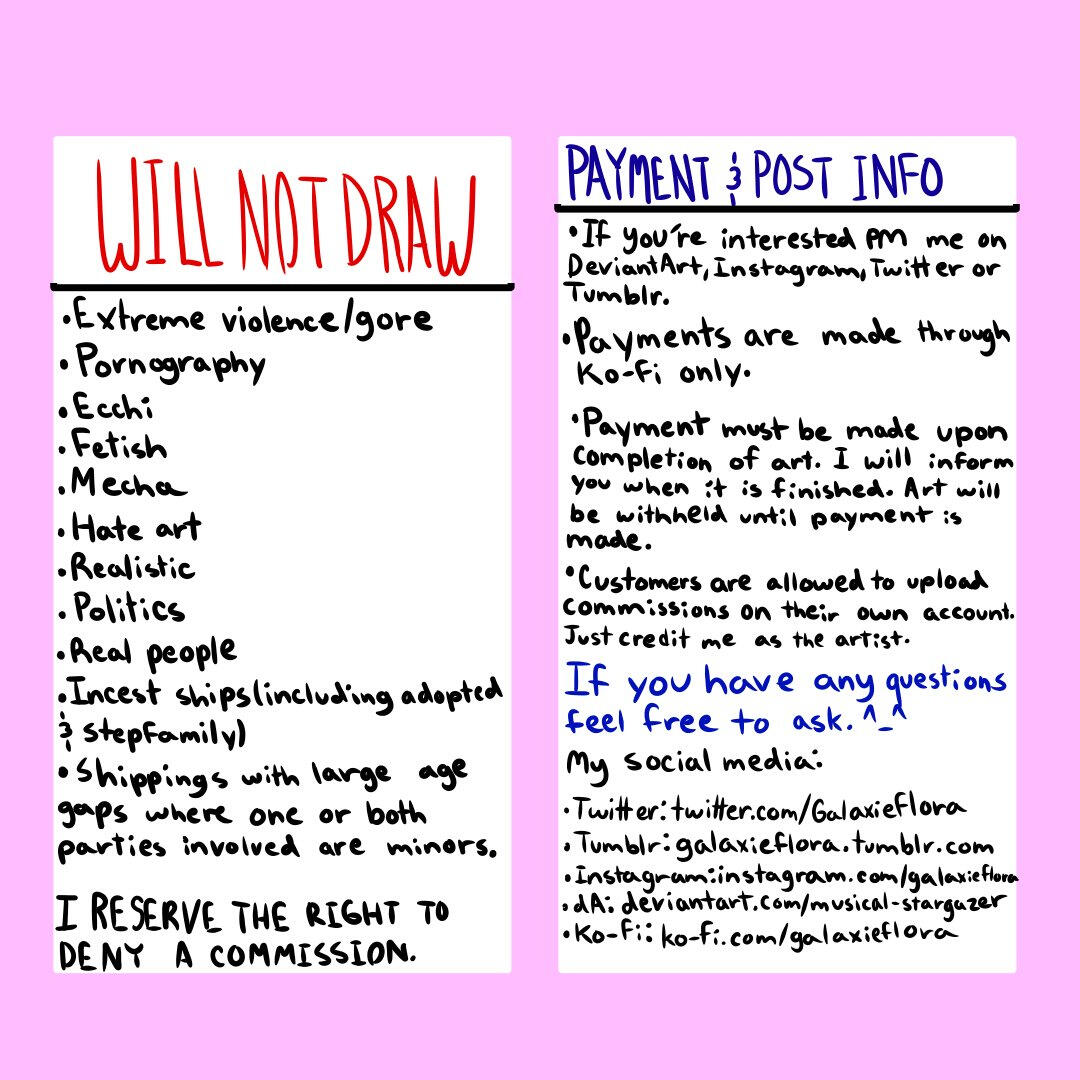 WILL NOT DRAW
•Extreme violence/gore
•Pornography
•Ecchi
•Fetish
•Mecha
•Hate art
•Realistic
•Politics
•Real people
•Incest ships(including adopted
& stepfamily)
•Shippings with large age
gaps where one or both
parties involved are minors.
I RESERVE THE RIGHT TO
DENY A COMMISSION.
PAYMENT & POST INFO
•If you're interested PM me on
DeviantArt, Instagram, Twitter or
Tumblr.
•Payments are made through
Ko-Fi only.
•Payment must be made upon
completion of art. I will inform
you when it is finished. Art will
be withheld until payment is
made.
•Customers are allowed to upload
commissions on their own account.
Just credit me as the artist.
If you have any questions
feel free to ask. ^_^
My social media:
•Twitter: twitter.com/GalaxieFlora
•Tumblr: galaxieflora.tumblr.com
•Instagram: instagram.com/galaxieflora
•dA: deviantart.com/musical-stargazer
•Ko-Fi: ko-fi.com/galaxieflora